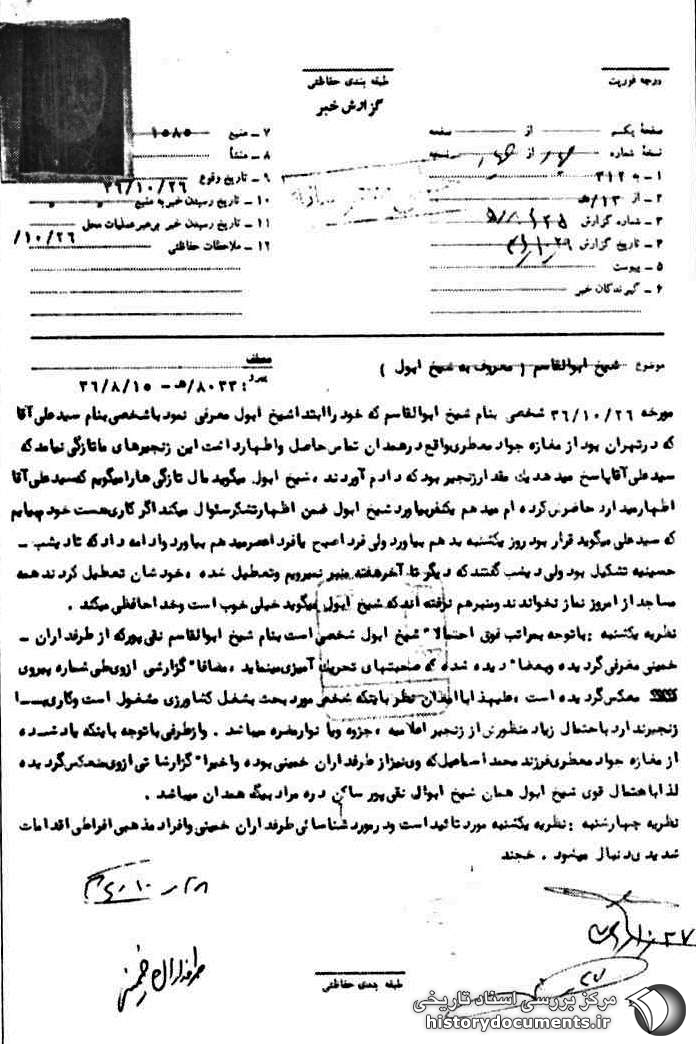 درجه فوریت
طبقه بندی حفاظتی
گزارش خبر
صفحهٔ یکم از صفحه
نسخهٔ شماره از نسخه
۱ – به ۳۱۲
۲ – از ۱۳/هـ
۳ – شماره گزارش
۴ – تاریخ گزارش
۵ – پیوست
۶ – گیرندگان خبر
۷ – منبع ۱۰۸۵
۸ – منشأ
۹ – تاریخ وقوع ۳۶/۱۰/۲۶
۱۰ – تاریخ رسیدن خبر به منبع
۱۱ – تاریخ رسیدن خبر برهبر عملیات محل ۱۰/۲۶/
۱۲ – ملاحظات حفاظتی
موضوع شیخ ابوالقاسم ( معروف به شیخ ابول )
عطف
پیرو : ۸۰۳۳/هـ – ۳۶/۸/۱۵
مورخه ۳۶/۱۰/۲۶ شخصی بنام شیخ ابوالقاسم که خود را ابتدا شیخ ابول معرفی نمود با شخصی بنام سید علی آقا
که در تهران بود از مغازه جواد معطری واقع در همدان تماس حاصل و اظهار داشت این زنجیرهای ما تازگی نیامد که
سید علی آقا پاسخ میدهد یک مقدار زنجیر بود که دادم آوردند ، شیخ ابول میگوید مال تازگی ها را میگویم که سید علی آقا
اظهار میدارد حاضرش کرده ام میدهم یکنفر بیاورد شیخ ابول ضمن اظهار تشکر سئوال میکند اگر کاری هست خود بیایم
که سید علی میگوید قرار بود روز یکشنبه بدهم بیاورد ولی فردا صبح یا فردا عصر میدهم بیاورد و ادامه داد که تا دیشب –
حسینیه تشکیل بود ولی دیشب گفتند که دیگر تا آخر هفته منبر نمیرویم و تعطیل شده ، خودشان تعطیل کردند همه
مساجد از امروز نماز نخواندند و منبر هم نرفته اند که شیخ ابول میگوید خیلی خوب است و خداحافظی میکند .
نظریه یکشنبه : با توجه بمراتب فوق احتمالا" شیخ ابول شخصی است بنام شیخ ابوالقاسم نقی پور که از طرفداران –
خمینی معرفی گردیده و بعضا" دیده شده که صحبتهای تحریک آمیزی مینماید ، مضافا" گزارشی از وی طی شماره پیروی
منعکس گردیده است ، علیهذا با امعان نظر باینکه شخص مورد بحث بشغل کشاورزی مشغول است و کاری با
زنجیر ندارد با حتمال زیاد منظورش از زنجیر اعلامیه ، جزوه و یا نوار مضره میباشد . و از طرفی با توجه باینکه یاد شده
از مغازه جواد معطری فرزند محمد اسماعیل که وی نیز از طرفداران خمینی بوده و اخیرا" گزارشاتی از وی منعکس گردیده
لذا با حتمال قوی شیخ ابول همان شیخ ابوال نقی پور ساکن دره مراد بیگ همدان میباشد .
نظریه چهارشنبه : نظریه یکشنبه مورد تائید است و در مورد شناسائی طرفداران خمینی و افراد مذهبی افراطی اقدامات
شدیدی دنبال میشود . خجند
طرفداران خمینی
طبقه بندی حفاظتی
مرکز بررسی اسناد تاریخی
historydocuments.ir